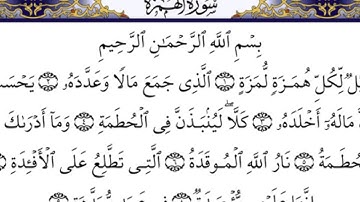 سُورَةُ الهُمَزَةِ
بِسْمِ ٱللَّهِ ٱلرَّحْمَٰنِ ٱلرَّحِيمِ
لِّكُلِّ هُمَزَةٍ لُّمَزَةٍ ١ ٱلَّذِى جَمَعَ مَالًا وَعَدَّدَهُۥ ٢ يَحْسَ
مَالَهُۥٓ أَخْلَدَهُۥ ٣ كَلَّا ۖ لَيُنۢبَذَنَّ فِى ٱلْحُطَمَةِ ٤ وَمَآ أَدْرَىٰكَ
حُطَمَةُ ٥ نَارُ ٱللَّهِ ٱلْمُوقَدَةُ ٦ ٱلَّتِى تَطَّلِعُ عَلَى ٱلْأَفْـِٔدَةِ ٧